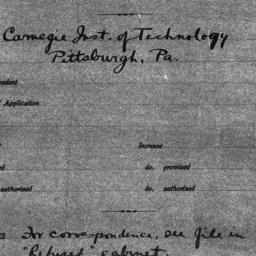 Carnegie Inst. of Technology
Pittsburgh, Pa.
Application
Increase
do. promised
authorized do. authorized
For correspondence, see file in
"Refused" cabinet